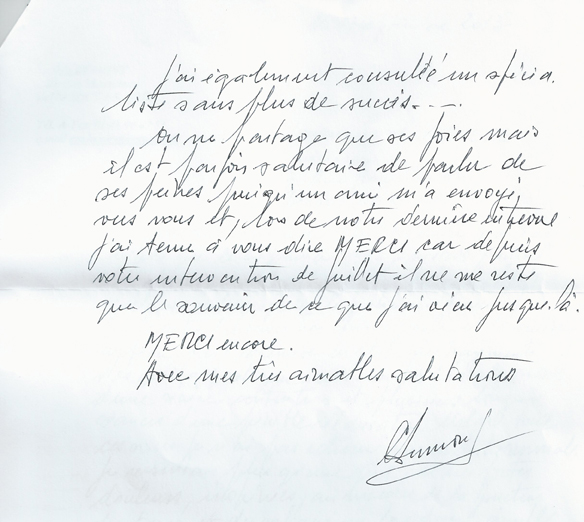 j'ai également consulté un spécia.
liste sans plus de succès....
On ne partage que ses joies mais
il est parfois salutaire de parler de
ses peines puisqu'un ami m'a envoyé
vers vous et, lors de notre dernière entrevue
j'ai tenu à vous dire MERCI car depuis
votre intervention de juillet il ne me reste
que le souvenir de ce que j'ai vécu jusque.là.
MERCI encore.
Avec mes très aimables salutations